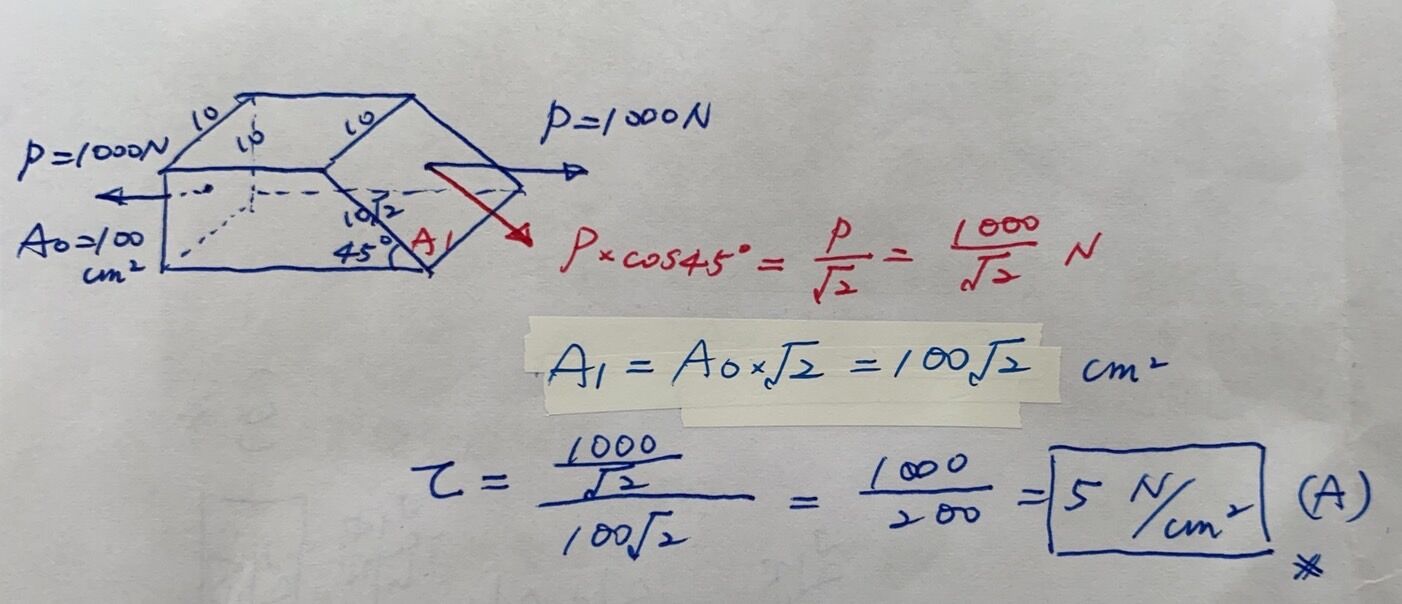 10
10
10
P=1000N
P=1000N
A0=100
cm²
10√2
45°
A1
P×cos45° = P/√2 = 1000/√2 N
A1 = A0×√2 = 100√2 cm²
τ = (1000/√2)/(100√2) = 1000/200 = 5 N/cm² (A)
※